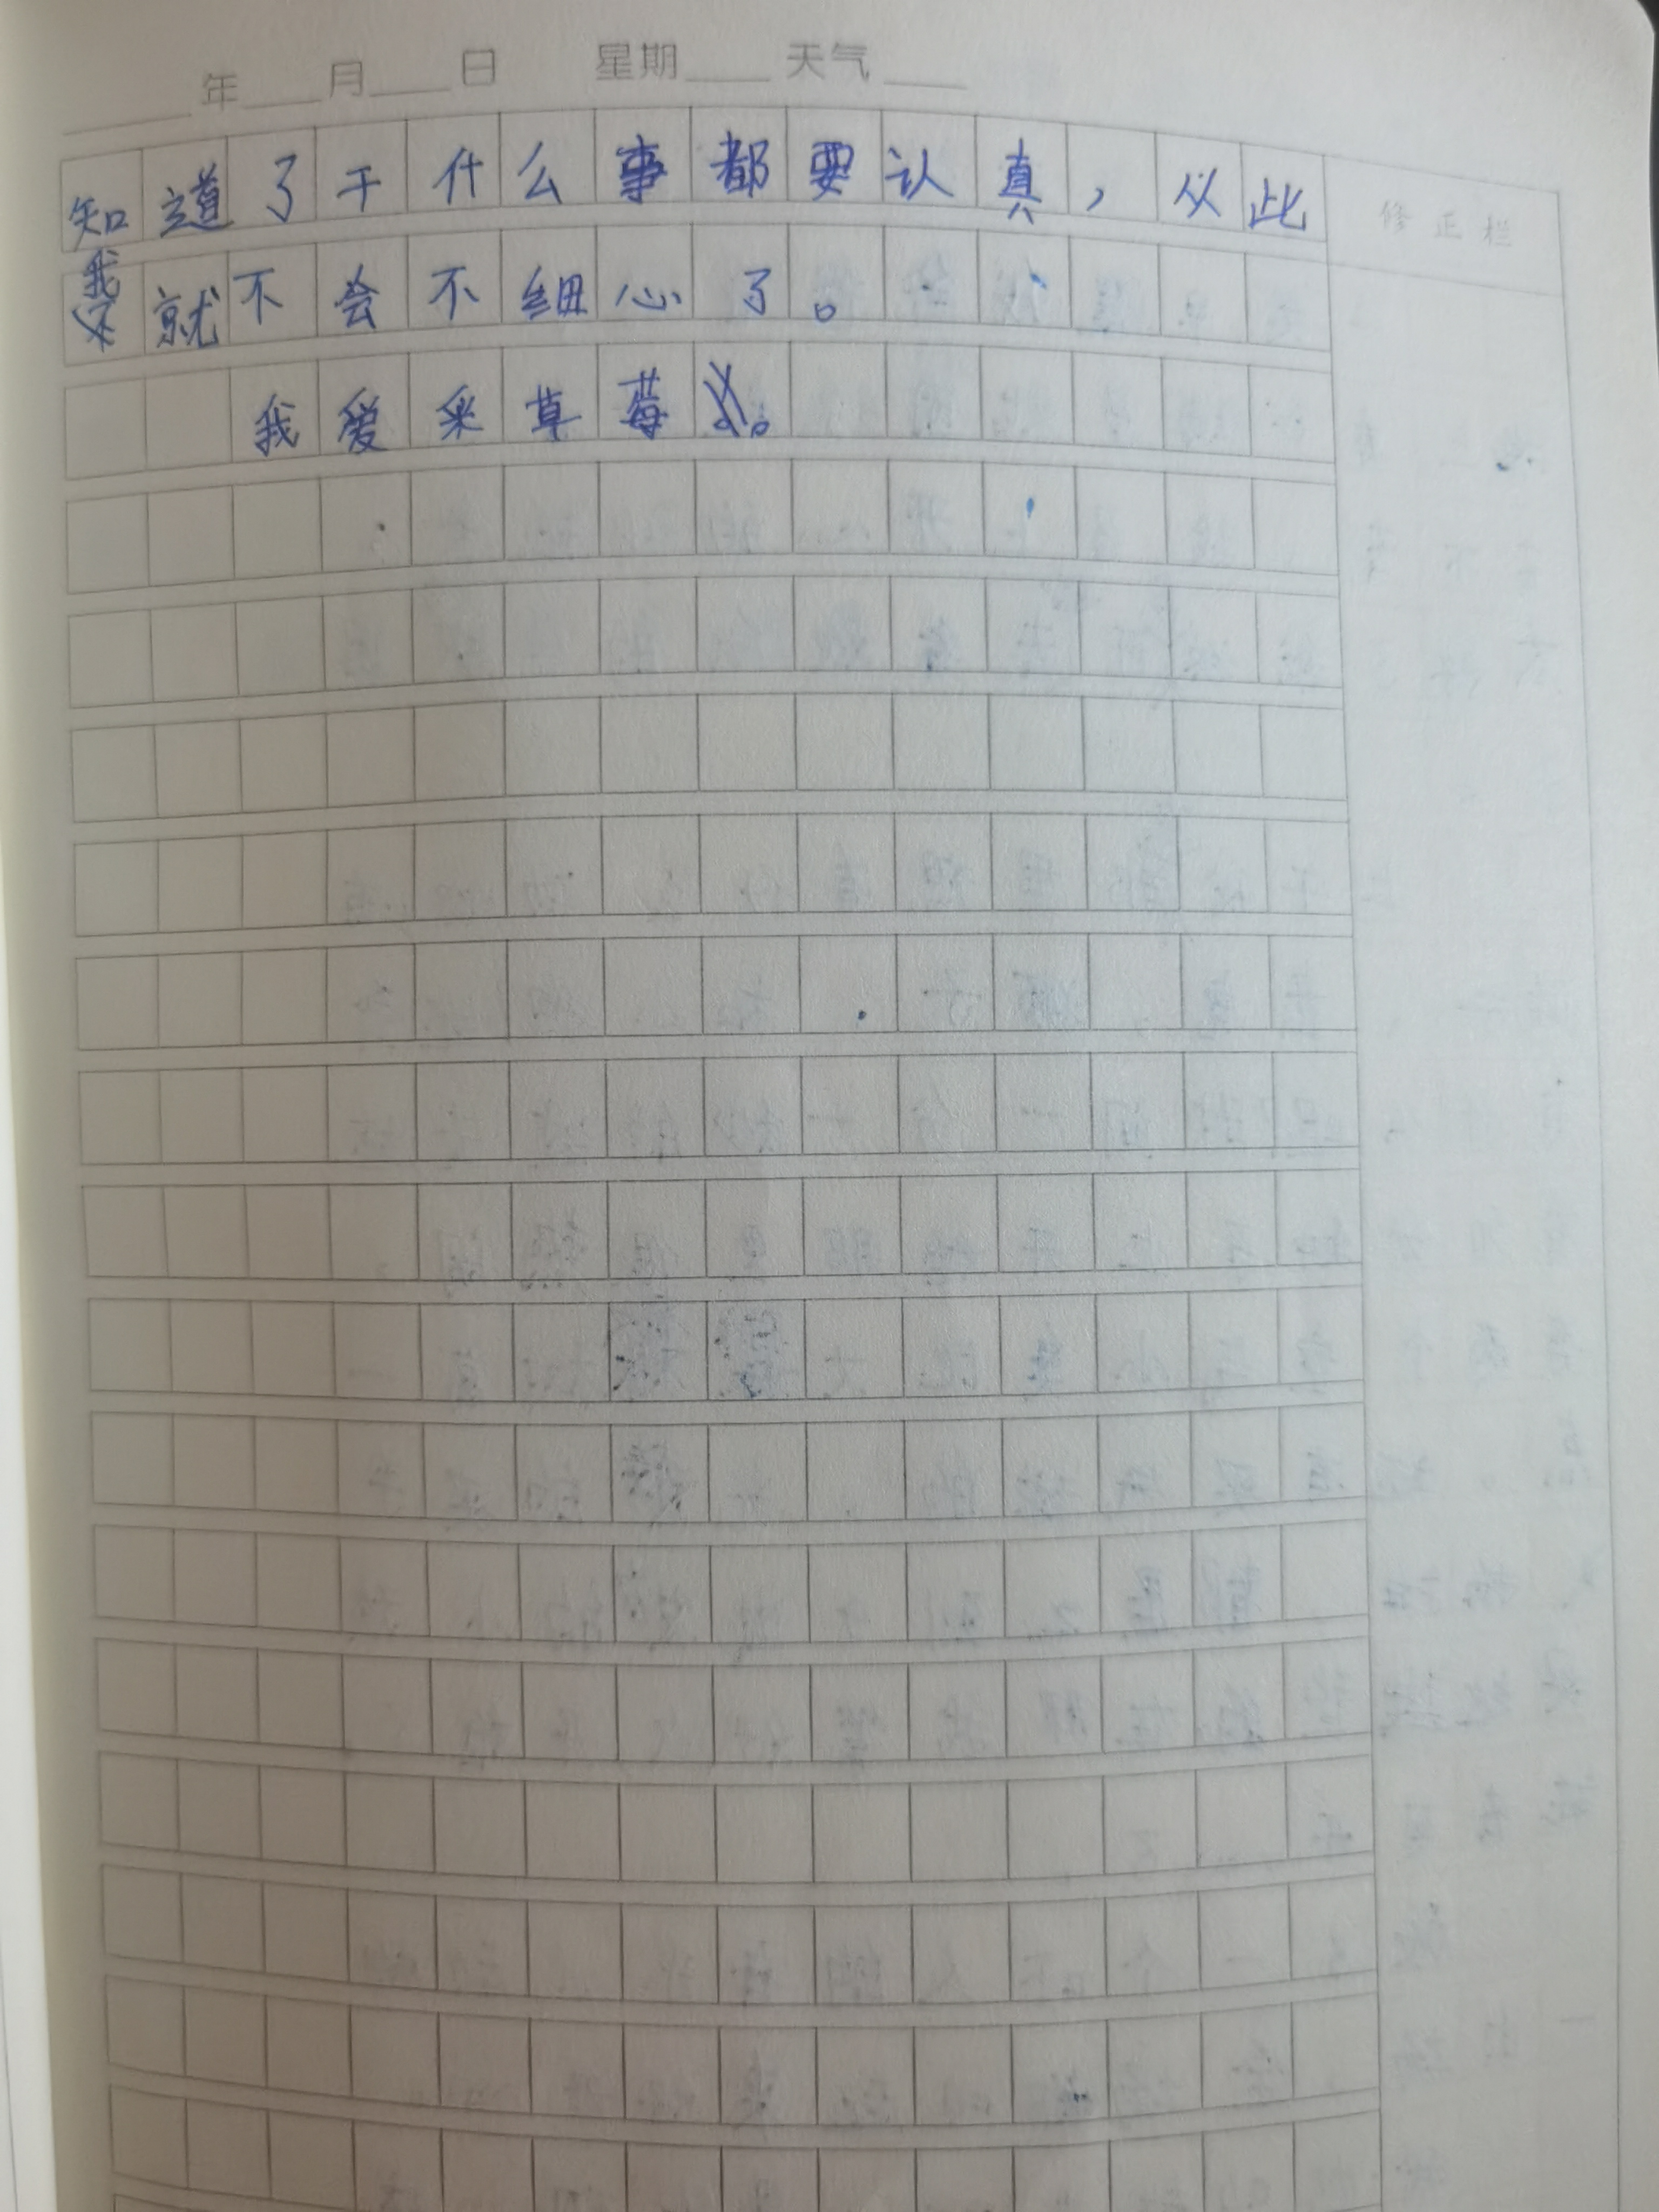 年 月 日 星期 天气
知道了干什么事都要认真，从此
我就不会不细心了。
我爱采草莓。
修正栏